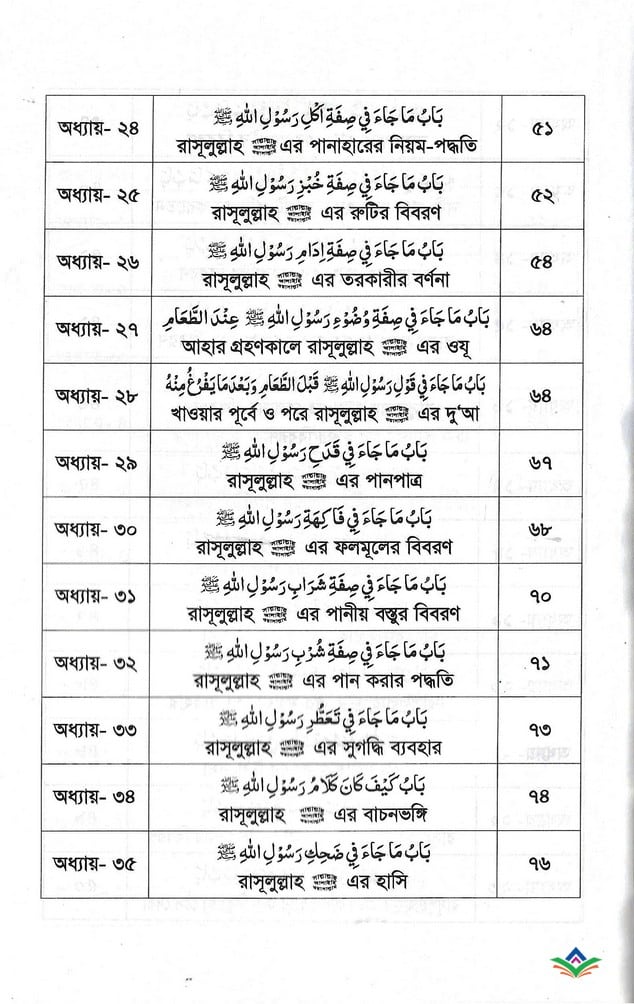 অধ্যায়- ২৪
بَابُ مَا جَاءَ فِي صِفَةِ اَكْلِ رَسُوْلِ اللهِ ﷺ
রাসূলুল্লাহ ﷺ এর পানাহারের নিয়ম-পদ্ধতি
৫১
অধ্যায়- ২৫
بَابُ مَا جَاءَ فِي صِفَةِ خُبْزِ رَسُوْلِ اللهِ ﷺ
রাসূলুল্লাহ ﷺ এর রুটির বিবরণ
৫২
অধ্যায়- ২৬
بَابُ مَا جَاءَ فِي صِفَةِ اِدَامِ رَسُوْلِ اللهِ ﷺ
রাসূলুল্লাহ ﷺ এর তরকারীর বর্ণনা
৫৪
অধ্যায়- ২৭
بَابُ مَا جَاءَ فِي صِفَةِ وُضُوْءِ رَسُوْلِ اللهِ ﷺ عِنْدَ الطَّعَامِ
আহার গ্রহণকালে রাসূলুল্লাহ ﷺ এর ওযূ
৬৪
অধ্যায়- ২৮
بَابُ مَا جَاءَ فِي قَوْلِ رَسُوْلِ اللهِ ﷺ قَبْلَ الطَّعَامِ وَبَعْدَ مَا يَفْرُغُ مِنْهُ
খাওয়ার পূর্বে ও পরে রাসূলুল্লাহ ﷺ এর দু'আ
৬৪
অধ্যায়- ২৯
بَابُ مَا جَاءَ فِي قَدَحِ رَسُوْلِ اللهِ ﷺ
রাসূলুল্লাহ ﷺ এর পানপাত্র
৬৭
অধ্যায়- ৩০
بَابُ مَا جَاءَ فِي فَاكِهَةِ رَسُوْلِ اللهِ ﷺ
রাসূলুল্লাহ ﷺ এর ফলমূলের বিবরণ
৬৮
অধ্যায়- ৩১
بَابُ مَا جَاءَ فِي صِفَةِ شَرَابِ رَسُوْلِ اللهِ ﷺ
রাসূলুল্লাহ ﷺ এর পানীয় বস্তুর বিবরণ
৭০
অধ্যায়- ৩২
بَابُ مَا جَاءَ فِي صِفَةِ شُرْبِ رَسُوْلِ اللهِ ﷺ
রাসূলুল্লাহ ﷺ এর পান করার পদ্ধতি
৭১
অধ্যায়- ৩৩
بَابُ مَا جَاءَ فِي تَعَطُّرِ رَسُوْلِ اللهِ ﷺ
রাসূলুল্লাহ ﷺ এর সুগন্ধি ব্যবহার
৭৩
অধ্যায়- ৩৪
بَابُ كَيْفَ كَانَ كَلَامُ رَسُوْلِ اللهِ ﷺ
রাসূলুল্লাহ ﷺ এর বাচনভঙ্গি
৭৪
অধ্যায়- ৩৫
بَابُ مَا جَاءَ فِي ضَحِكِ رَسُوْلِ اللهِ ﷺ
রাসূলুল্লাহ ﷺ এর হাসি
৭৬